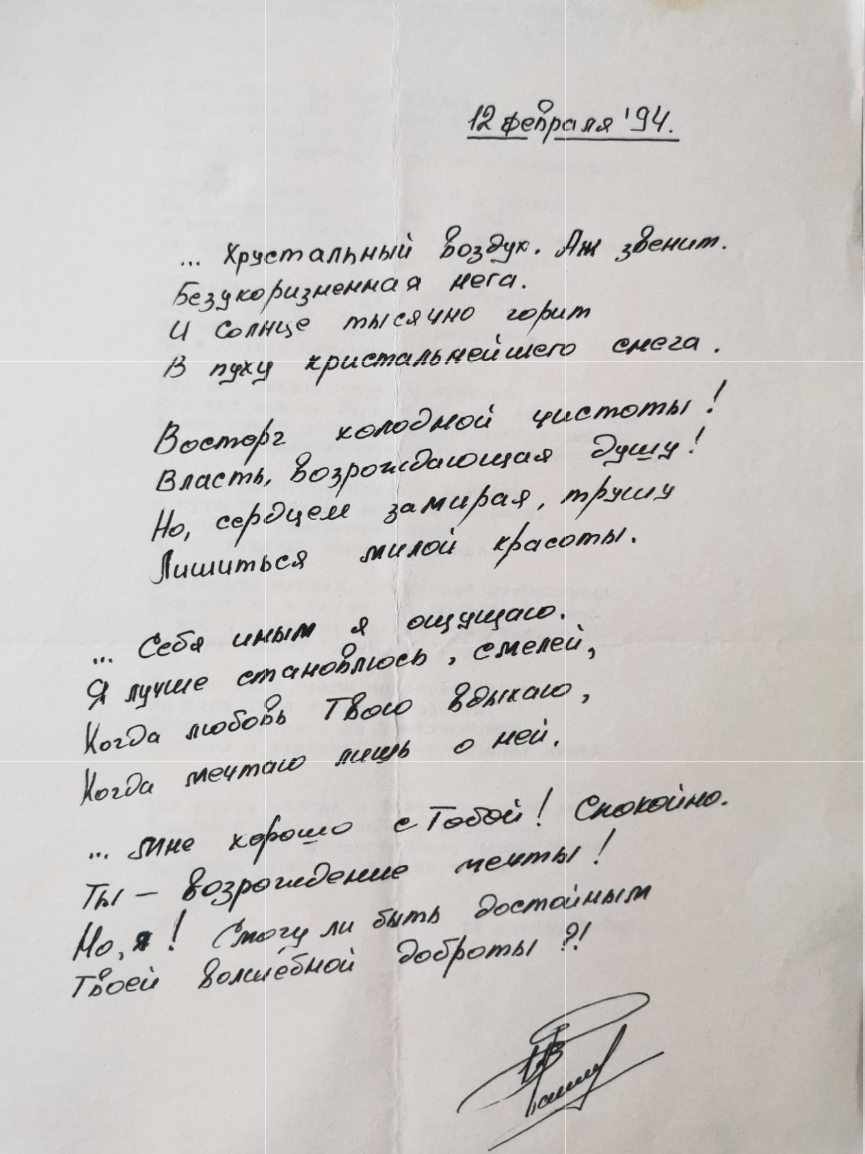 12 февраля '94.
... Хрустальный воздух. Аж звенит.
Безукоризненная нега.
И Солнце тысячно горит
В пуху кристальнейшего снега.
Восторг холодной чистоты!
Власть, возрождающая душу!
Но, сердцем замирая, трушу
Лишиться милой красоты.
... Себя иным я ощущаю.
Я лучше становлюсь, смелей,
Когда любовь Твою вдыхаю,
Когда мечтаю лишь о ней.
... Мне хорошо с Тобой! Спокойно.
Ты – возрождение мечты!
Но, я! Смогу ли быть достойным
Твоей волшебной доброты?!